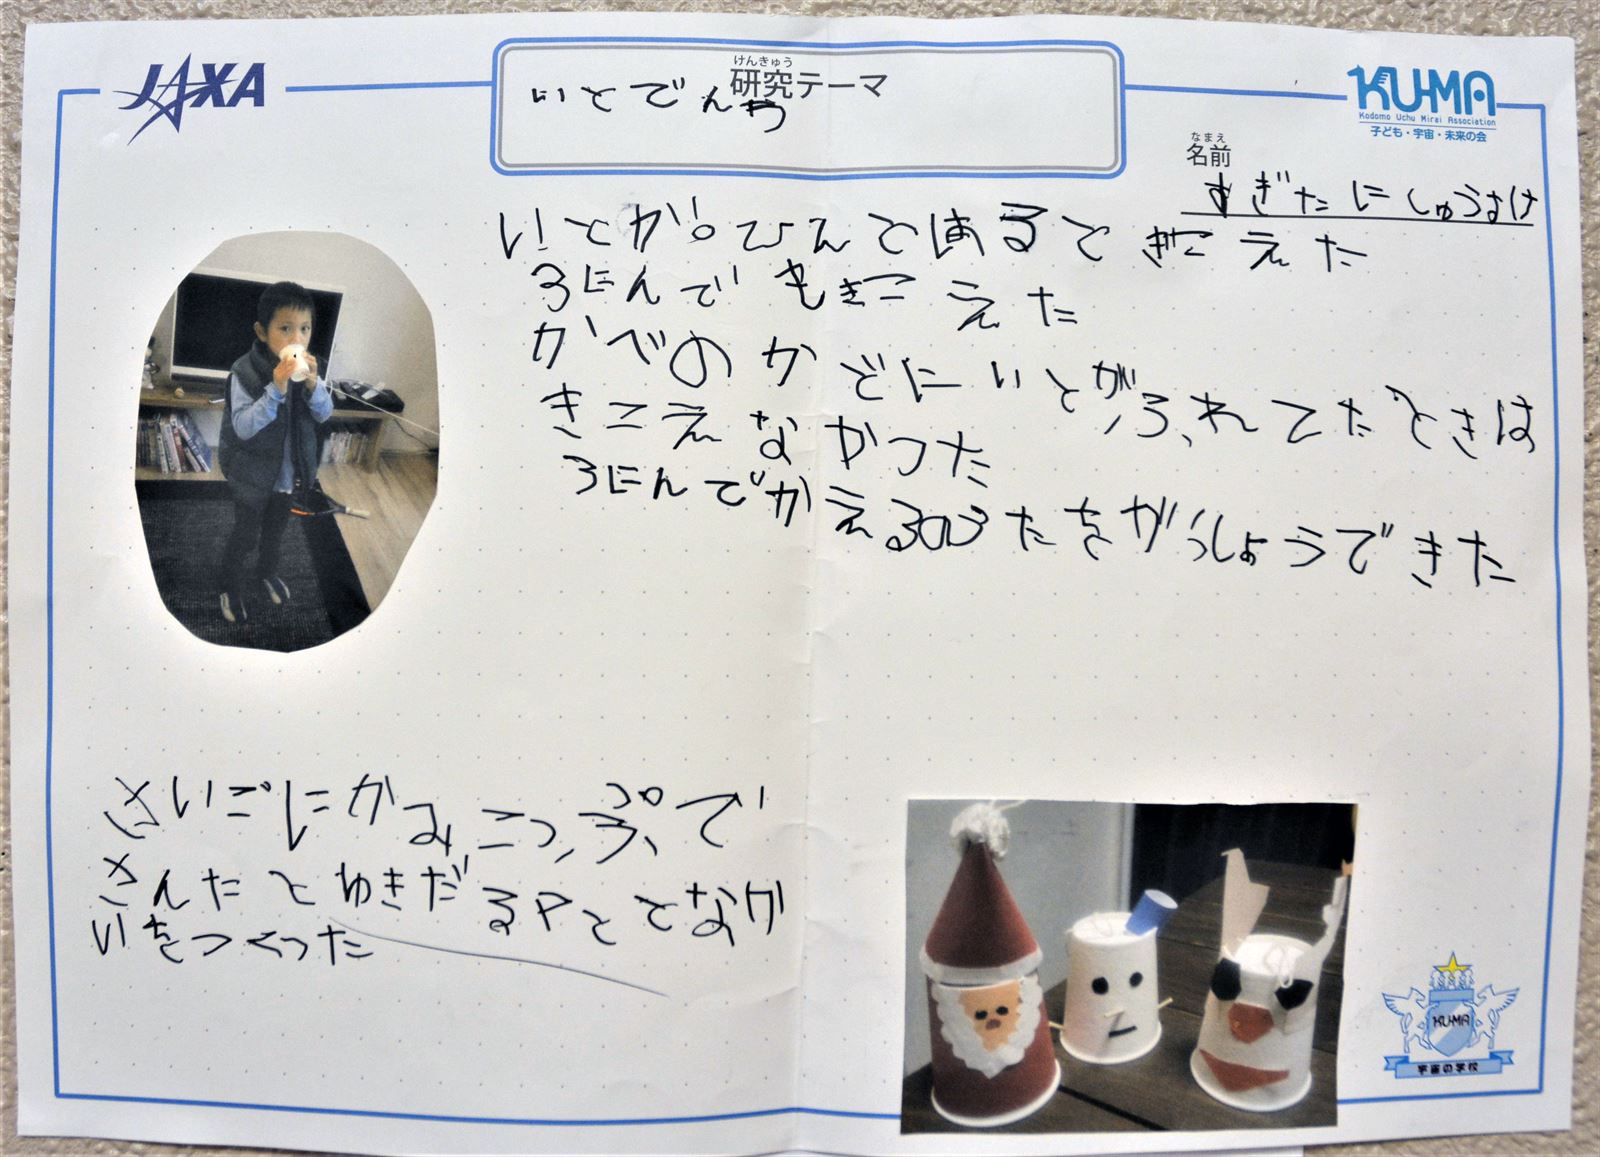 JAXA
けんきゅう
研究テーマ
いとでんわ
KU-MA
Kodomo Uchu Mirai Association
子ども・宇宙・未来の会
なまえ
名前
すぎたにしゅうすけ
いとが。ぴんとはるときこえた
3にんでもきこえた
かべのかどにいとがふれてたときは
きこえなかった
3にんでかえるのうたをがっしょうできた
さいごにかみこっぷで
さんたとゆきだるまととなか
いをつくった
KU-MA
宇宙の学校